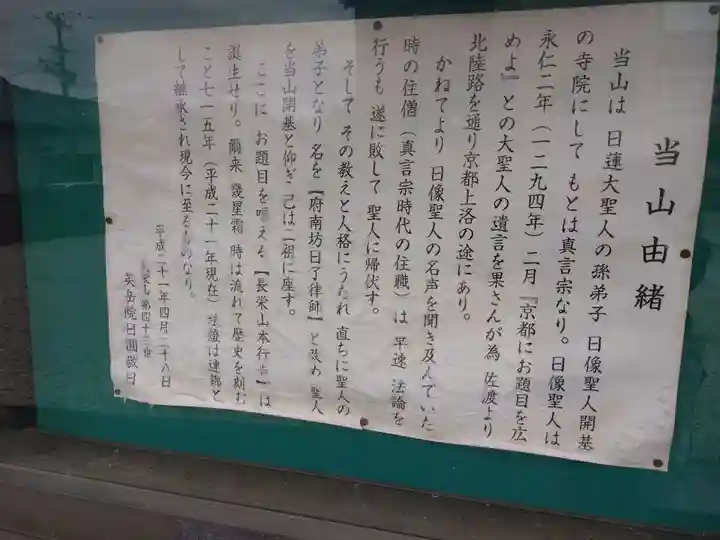 当山由緒
当山は 日蓮大聖人の孫弟子 日像聖人開基
の寺院にして もとは真言宗なり。日像聖人は
永仁二年（一二九四年）二月『京都にお題目を広
めよ』との大聖人の遺言を果さんが為 佐渡より
北陸路を通り京都上洛の途にあり。
かねてより 日像聖人の名声を聞き及んでいた
時の住僧（真言宗時代の住職）は 早速 法論を
行うも 遂に敗して 聖人に帰伏す。
そして その教えと人格にうたれ 直ちに聖人の
弟子となり 名を【府南坊日了律師】と改め 聖人
を当山開基と仰ぎ 己は二祖に座す。
ここに お題目を唱える【長栄山本行寺】は
誕生せり。爾来 幾星霜 時は流れて歴史を刻む
こと七一五年（平成二十一年現在）法燈は連綿と
して継承され現今に至るものなり。
平成二十一年四月二十八日
第四十三世
日圓敬白